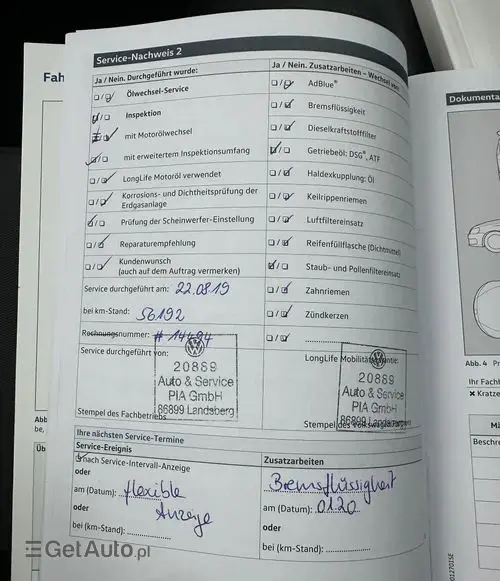 Service-Nachweis 2
Fah
Ja / Nein. Durchgeführt wurde:
Ölwechsel-Service
Inspektion
mit Motorölwechsel
mit erweitertem Inspektionsumfang
LongLife Motoröl verwendet
Korrosions- und Dichtheitsprüfung der
Erdgasanlage
Prüfung der Scheinwerfer-Einstellung
Reparaturempfehlung
Kundenwunsch
(auch auf dem Auftrag vermerken)
Service durchgeführt am: 22.08.19
bei km-Stand: 56192
Rechnungsnummer: # 14494
Service durchgeführt von:
20889
Auto & Service
PIA GmbH
86899 Landsberg
Stempel des Fachbetriebs
Ja / Nein. Zusatzarbeiten – Wechsel von:
AdBlue®
Bremsflüssigkeit
Dieselkraftstofffilter
Getriebeöl: DSG®, ATF
Haldexkupplung: Öl
Keilrippenriemen
Luftfiltereinsatz
Reifenfüllflasche (Dichtmittel)
Staub- und Pollenfiltereinsatz
Zahnriemen
Zündkerzen
LongLife Mobilitätsgarantie:
20889
Auto & Service
PIA GmbH
86899 Landsberg
Stempel des Volkswagen
Ihre nächsten Service-Termine
Service-Ereignis
nach Service-Intervall-Anzeige
oder
am (Datum): flexible
oder Anzeige
bei (km-Stand):
Zusatzarbeiten
Bremsflüssigkeit
am (Datum): 0120
oder
bei (km-Stand):
Dokumenta
Abb. 4 Pr
Ihr Facht
Kratze
Mä
Beschre
Abb
be,
Üb
012701SE
GetAuto.pl